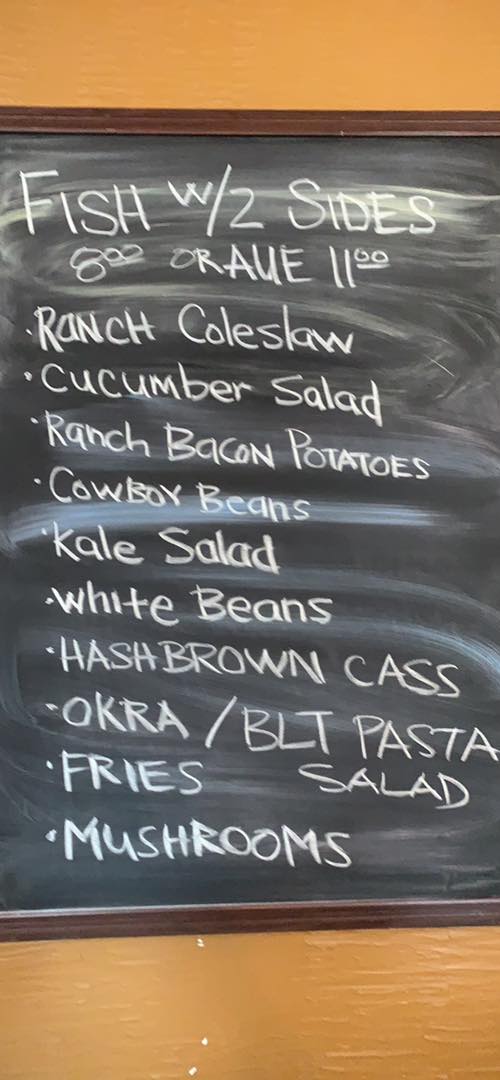 FISH W/2 SIDES
8⁰⁰ OR AUE 11⁰⁰
·RANCH Coleslaw
·CUCUMBER Salad
·Ranch BACON POTATOES
·COWBOY Beans
·Kale Salad
·White Beans
·HASHBROWN CASS
·OKRA / BLT PASTA
·FRIES SALAD
·MUSHROOMS